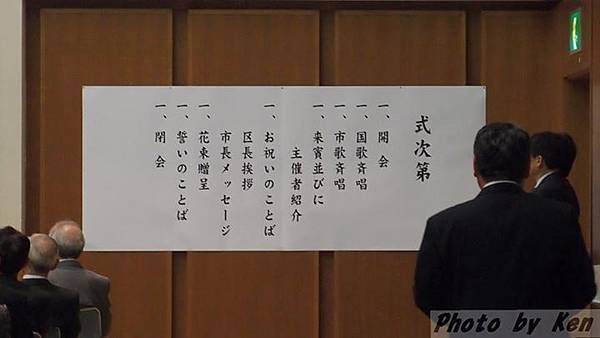 式次第
一、開会
一、国歌斉唱
一、市歌斉唱
一、来賓並びに
主催者紹介
一、お祝いのことば
区長挨拶
市長メッセージ
一、花束贈呈
一、誓いのことば
一、閉会
Photo by Ken